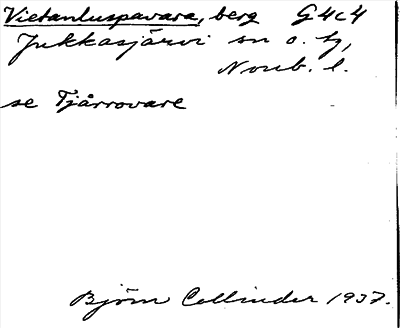 Vietanluspavara, berg G4c4
Jukkasjärvi sn o. tg,
Norrb. l.
se Tjårrovare
Björn Collinder 1937.